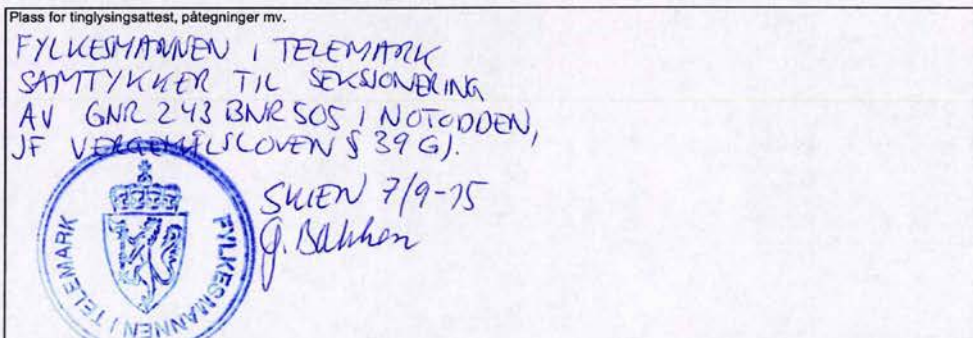 Plass for tinglysingsattest, påtegninger mv.
FYLKESMANNEN I TELEMARK
SAMTYKKER TIL SEKSJONERING
AV GNR 243 BNR 505 I NOTODDEN,
JF VERGEMÅLSLOVEN § 39 G).
SKIEN 7/9-15
G. Bakken
FYLKESMANNEN I TELEMARK